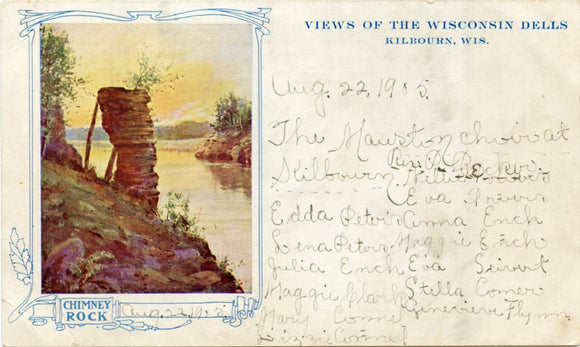 VIEWS OF THE WISCONSIN DELLS
KILBOURN, WIS.
Aug. 22, 1905.
The Mauston choir at
Kilbourn
Becker
Eva
Edda Peters Anna Ench
Lena Peters Maggie Ench
Julia Ench Eva Seivert
Maggie Clark Stella Comer
Mary Connel Genevieve Flynn
Lizzie Connel
CHIMNEY
ROCK
Aug. 22, 1905.